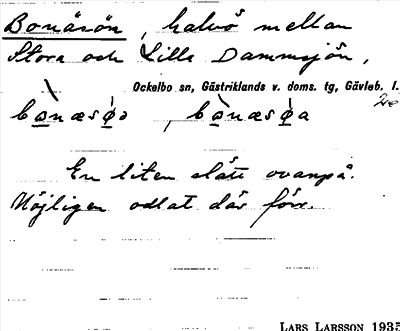 Bonäsön, halvö mellan
Stora och Lilla Dammsjön,
Ockelbo sn, Gästriklands v. doms. tg, Gävleb. l.
En liten slätt ovanpå.
Möjligen odlat där förr.
LARS LARSSON 1935